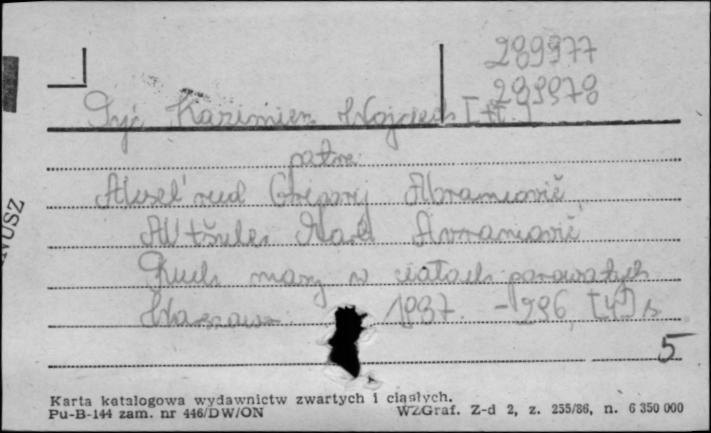 289977
289978
Pyć Kazimierz Wojciech [tł.]
patrz
Aksel'rud Grigorij Abramovič,
Al'tšuler Mark Avramovič
Ruch masy w ciałach porowatych
Warszawa 1987. - 296, [4] s
5
NUSZ
Karta katalogowa wydawnictw zwartych i ciągłych.
Pu-B-144 zam. nr 446/DW/ON WZGraf. Z-d 2, z. 255/86, n. 6 350 000